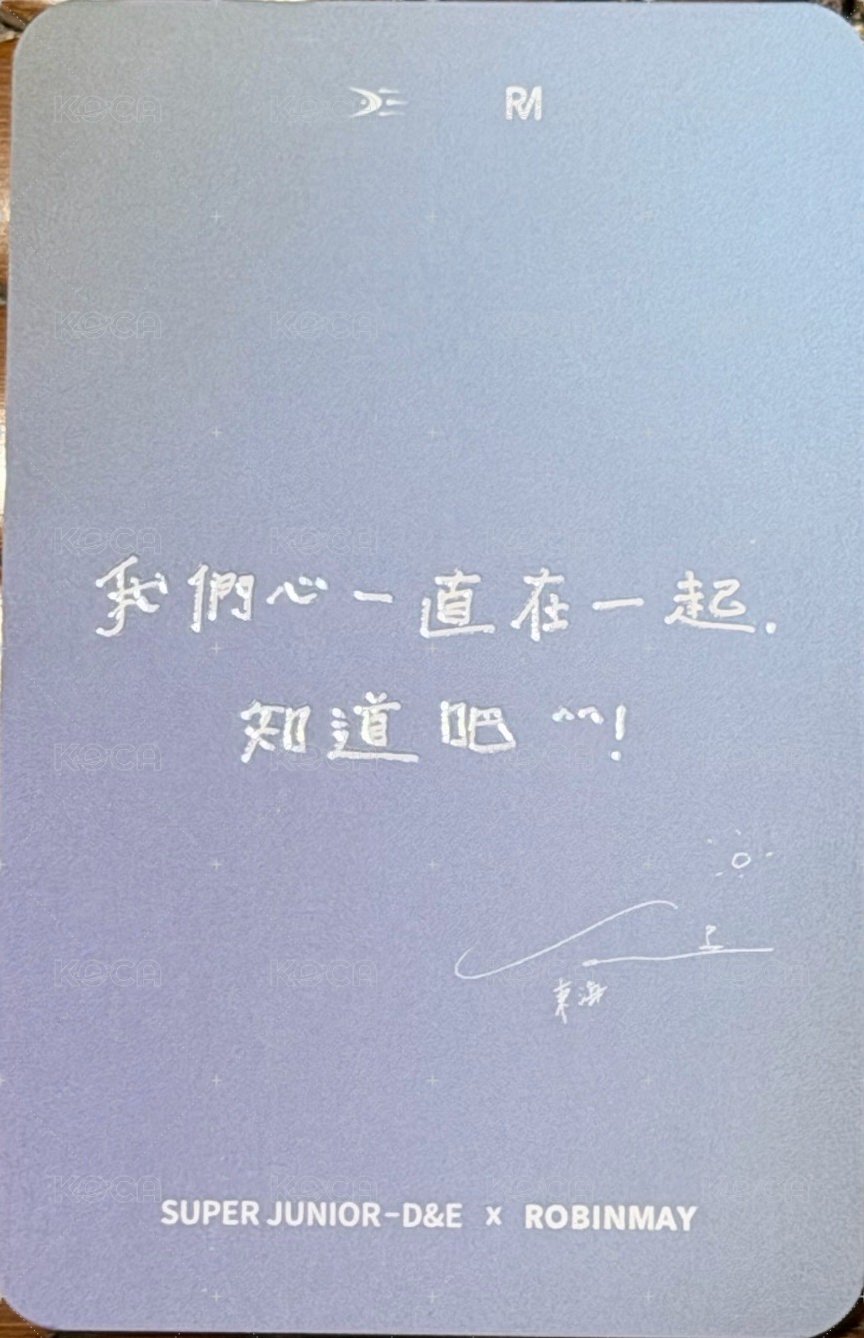 RM
我們心一直在一起.
知道吧 ^^!
東海
SUPER JUNIOR-D&E x ROBINMAY
KOCA